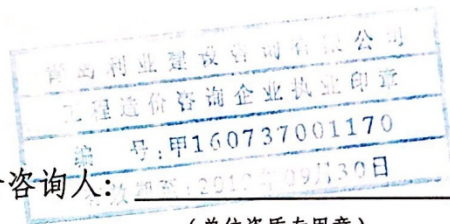 青岛利业建设咨询有限公司
工程造价咨询企业执业印章
编 号:甲160737001170
有效期至:2019年09月30日
咨询人:
(单位资质专用章)